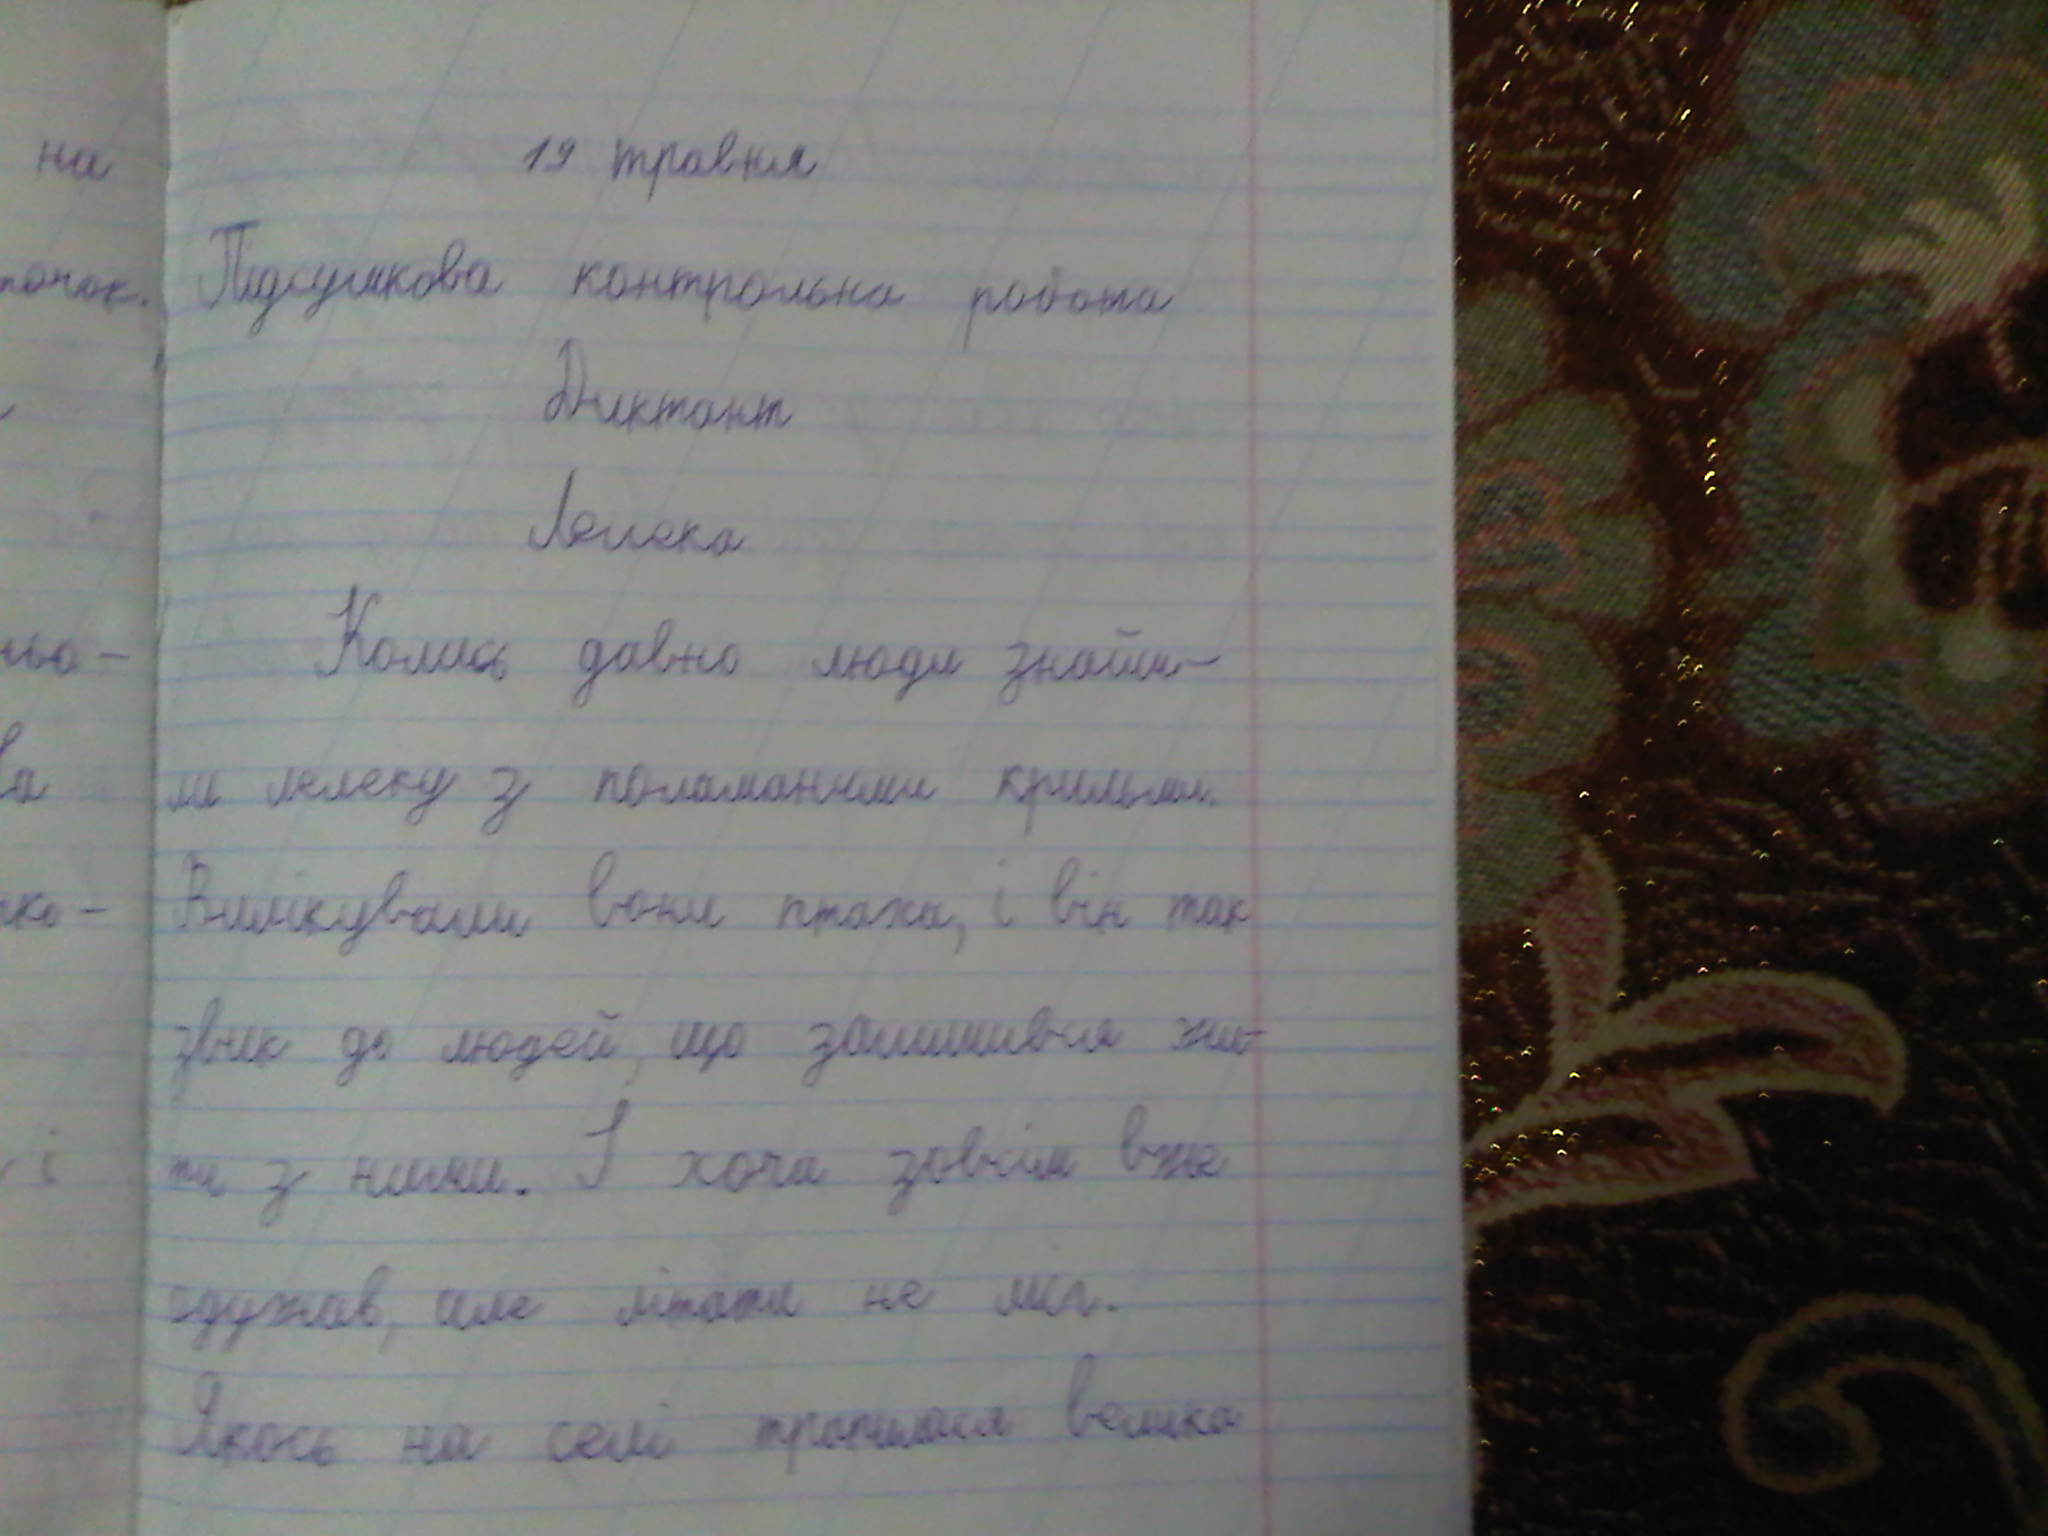 19 травня
Підсумкова контрольна робота
Диктант
Лелека
Колись давно люди знайш-
ли лелеку з поламаними крильми.
Вилікували вони птаха, і він так
звик до людей, що залишився жи-
ти з ними. І хоча зовсім вже
одужав, але літати не міг.
Якось на селі трапилася велика
на
точок.
ньо-
ва
і